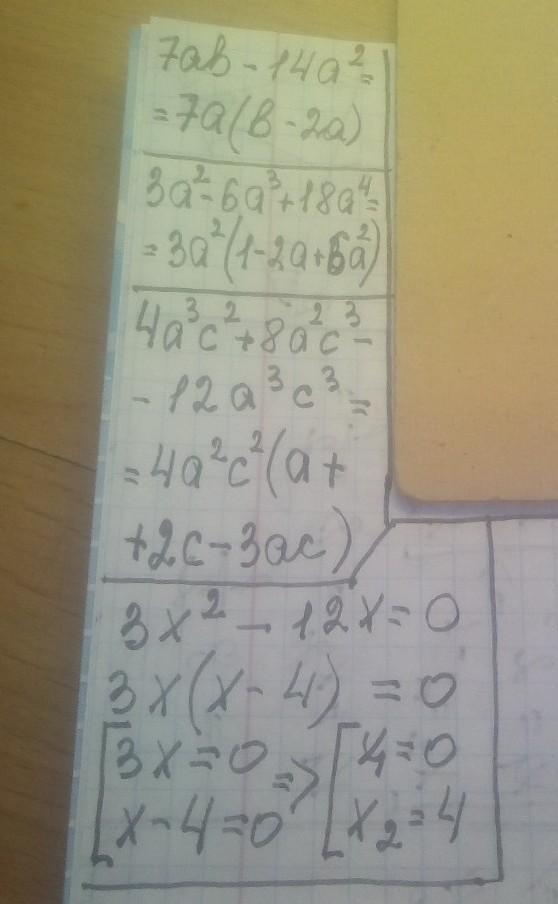 7ab - 14a² =
= 7a(b - 2a)
3a² - 6a³ + 18a⁴ =
= 3a²(1 - 2a + 6a²)
4a³c² + 8a²c³ -
- 12a³c³ =
= 4a²c²(a +
+ 2c - 3ac)
3x² - 12x = 0
3x(x - 4) = 0
[3x = 0 => [x₁ = 0
[x - 4 = 0 [x₂ = 4